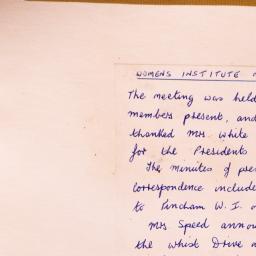 WOMENS INSTITUTE
The meeting was held
members present, and
thanked Mrs. White
for the Presidents
The minutes of
Correspondence
to Fincham W. I.
Mrs Speed
the Whist Drive